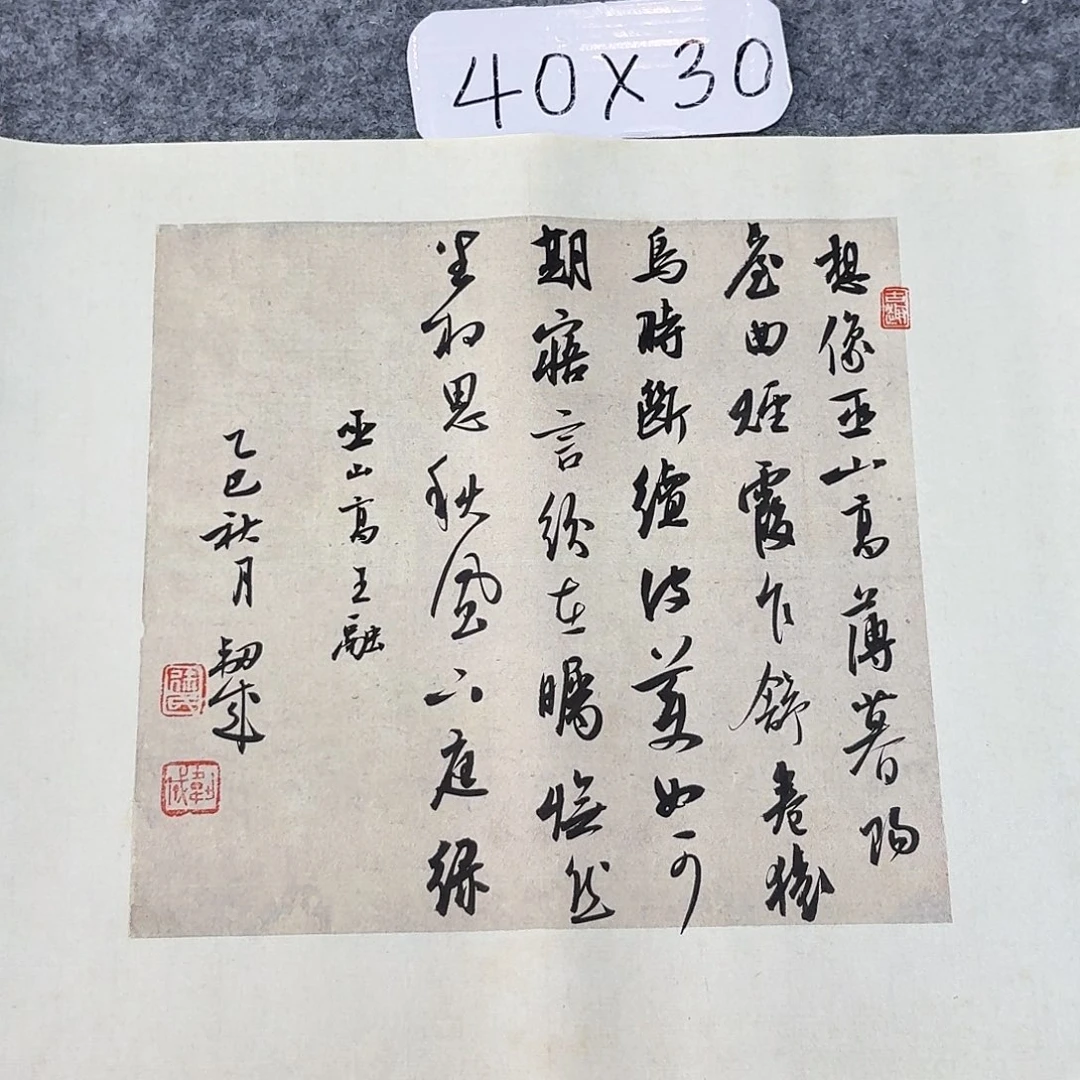 40X30
想像巫山高薄暮陽
臺曲煙霞乍舒卷猿
鳥時斷續彼美如可
期寤言紛在矚憮然
坐相思秋風下庭綠
巫山高 王融
乙巳秋月 韌成